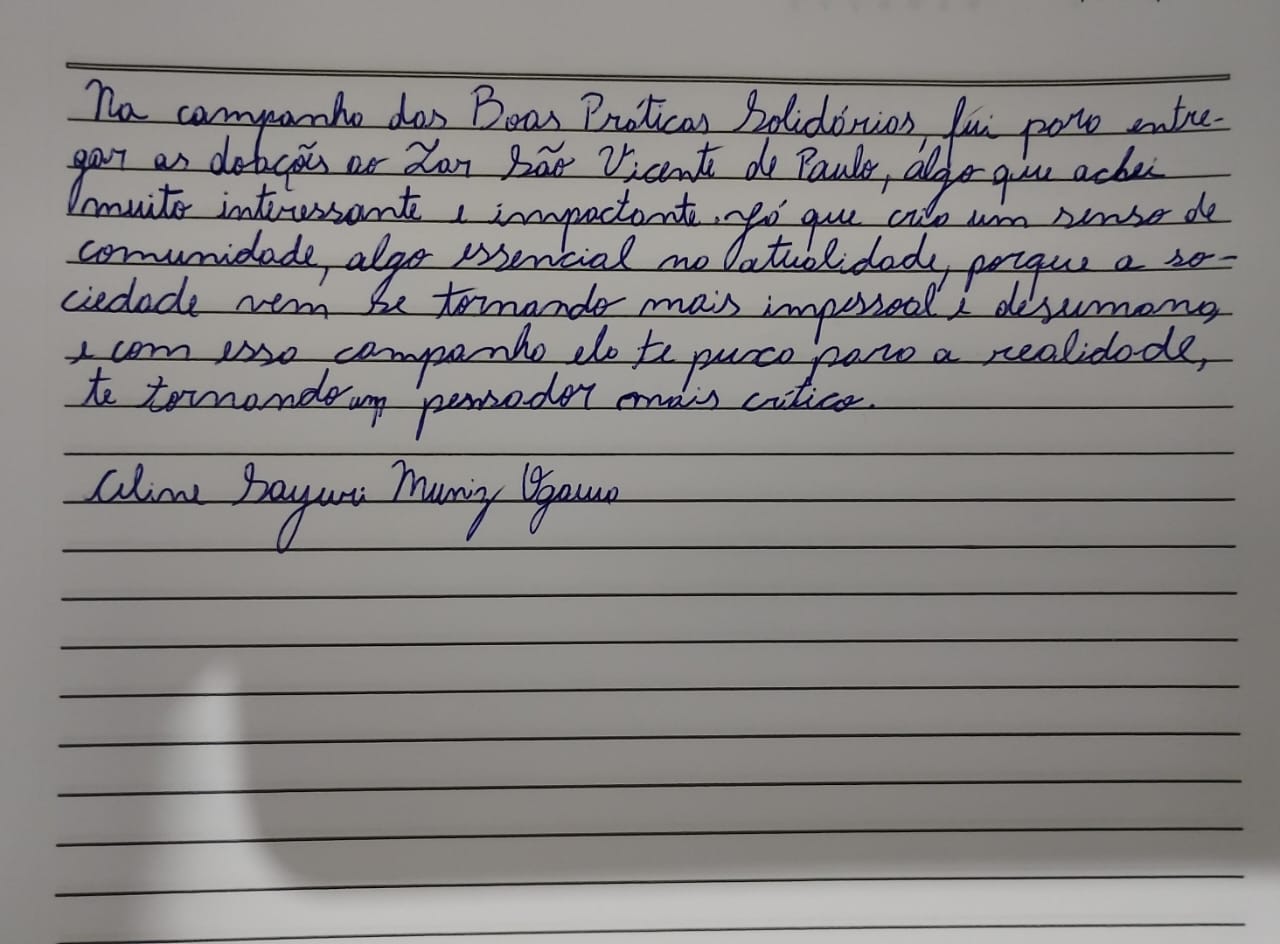 Na campanha das Boas Práticas Solidárias, fui para entre-
gar as doações ao Lar São Vicente de Paulo, algo que achei
muito interessante e impactante, já que cria um senso de
comunidade, algo essencial na atualidade, porque a so-
ciedade vem se tornando mais impessoal e desumana,
e com essa campanha ela te puxa para a realidade,
te tornando um pensador mais crítico.
Aline Sayuri Muniz Ogawa